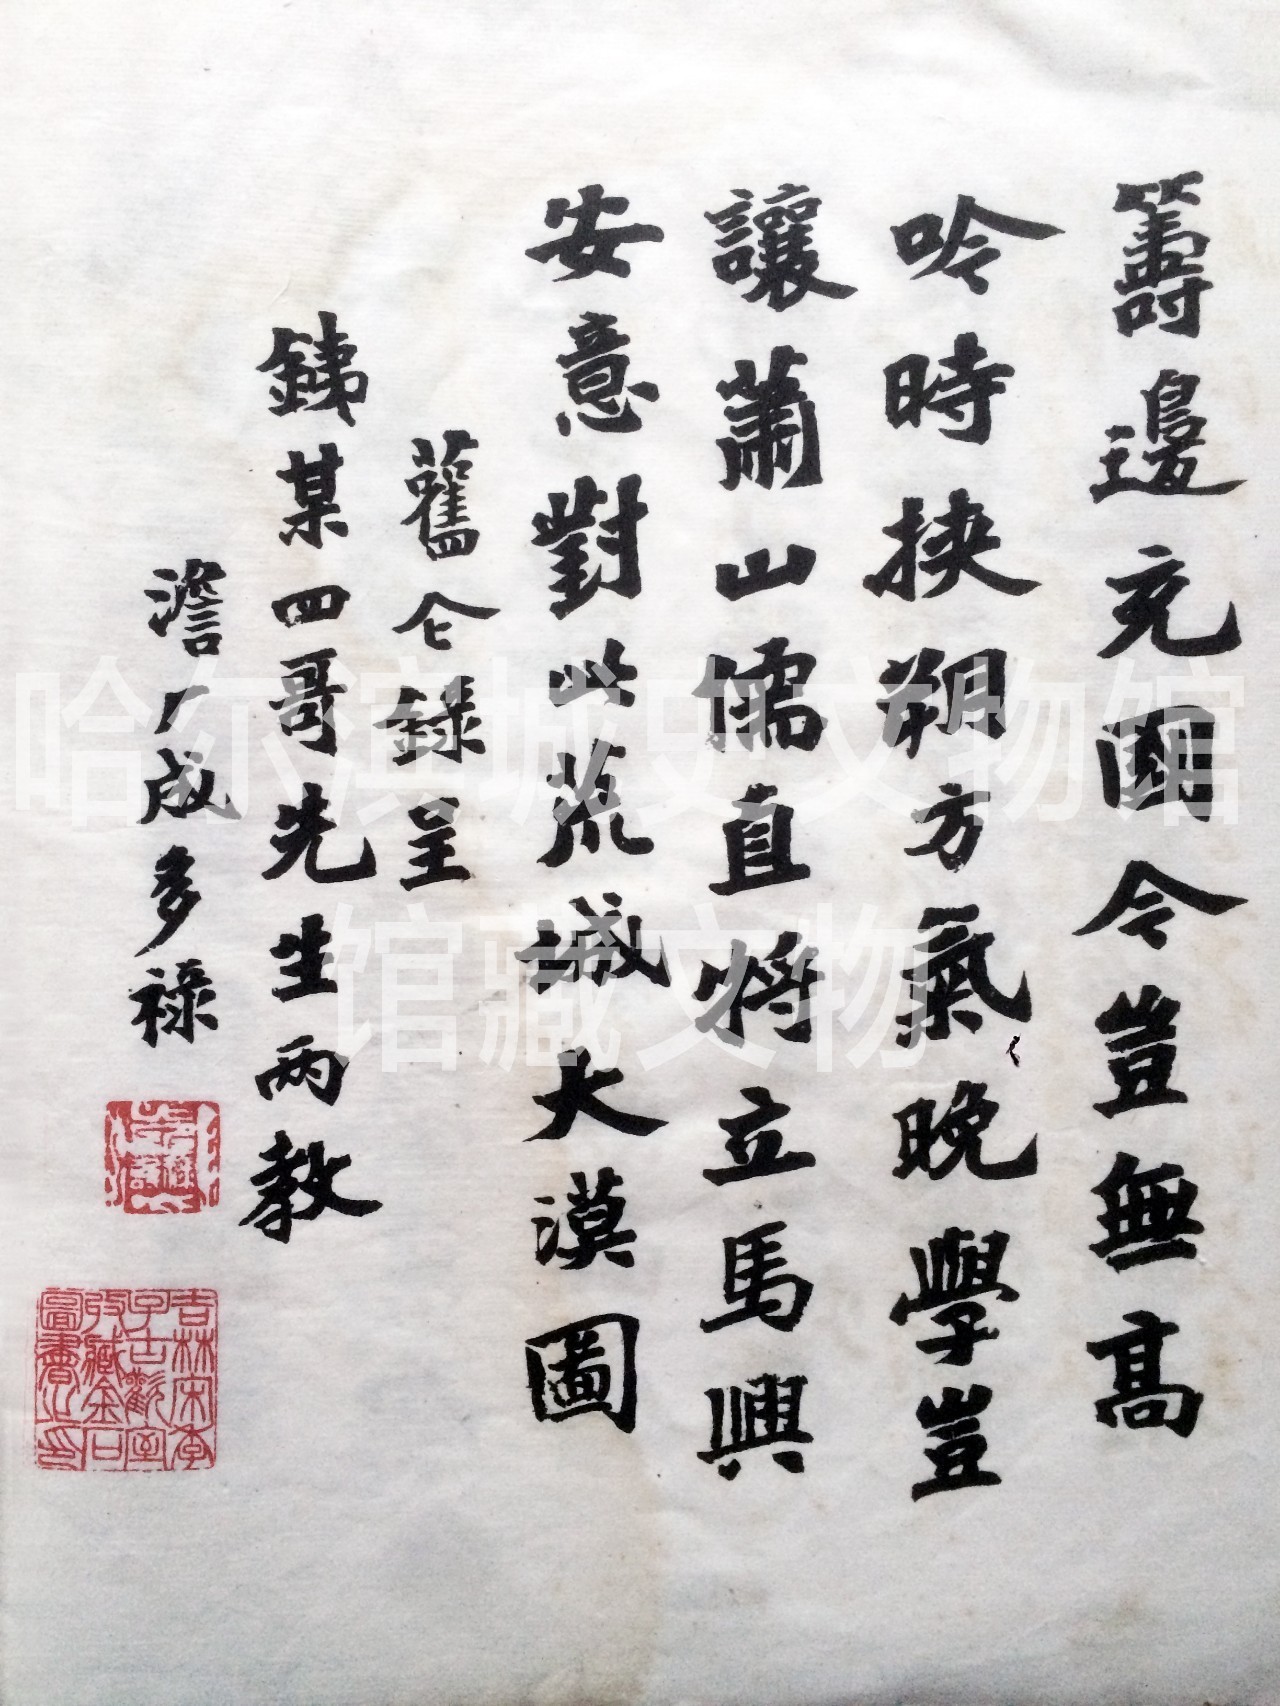 籌邊充國今豈無高
吟時挾朔方氣晚學豈
讓蕭山儒直將立馬興
安意對此荒城大漠圖
舊仝錄呈
銕某四哥先生兩教
澹厂成多祿
吉林宋季
子古歡室
收藏金石
圖書之印
哈尔滨城史文物馆
馆藏文物